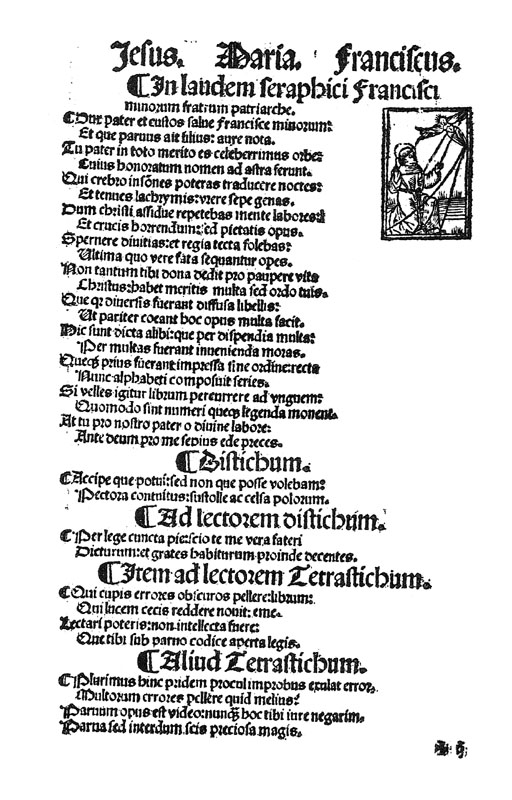 Jesus. Maria. Franciscus.
¶In laudem seraphici Francisci
minorum fratrum patriarche.
¶Dux pater et custos salue francisce minorum:
Et que paruus ait filius: aure nota.
Tu pater in toto merito es celeberrimus orbe:
Cuius honoratum nomen ad astra ferunt.
Qui crebro insōnes poteras traducere noctes:
Et tenues lachrymis: vrere sepe genas.
Dum christi assidue repetebas mente labores:
Et crucis horrendum: ed pietatis opus.
Spernere diuitias: et regia tecta solebas:
Ultima quo vere fata sequantur opes.
Non tantum tibi dona dedit pro paupere vita
Christus: habet meritis multa sed ordo tuis.
Que qr diuersis fuerant diffusa libellis:
Ut pariter coeant hoc opus multa facit.
Hic sunt dicta alibi: que per dispendia multa:
Per multas fuerant inuenienda moras.
Quecq prius fuerant impressa sine ordine: recta
Nunc alphabeti composuit series.
Si velles igitur librum percurrere ad vnguem:
Quomodo sint numeri quecq legenda monent.
At tu pro nostro pater o diuine labore:
Ante deum pro me sepius ede preces.
¶Distichum.
¶Accipe que potui: sed non que posse volebam:
Pectora contuitus: sustolle ac celsa polorum.
¶Ad lectorem distichum.
¶Per lege cuncta pie: scio te me vera fateri
Dicturum: et grates habiturum proinde decentes.
¶Item ad lectorem Tetrastichum.
¶Qui cupis errores obscuros pellere: librum:
Qui lucem cecis reddere nouit: eme.
Lectari poteris: non intellecta fuere:
Que tibi sub paruo codice aperta legis.
¶Aliud Tetrastichum.
¶Plurimus hinc pridem procul improbus exulat error.
Multorum errores pellere quid melius?
Paruum opus est video: nunq̄ hoc tibi iure negarim.
Parua sed interdum scis preciosa magis.